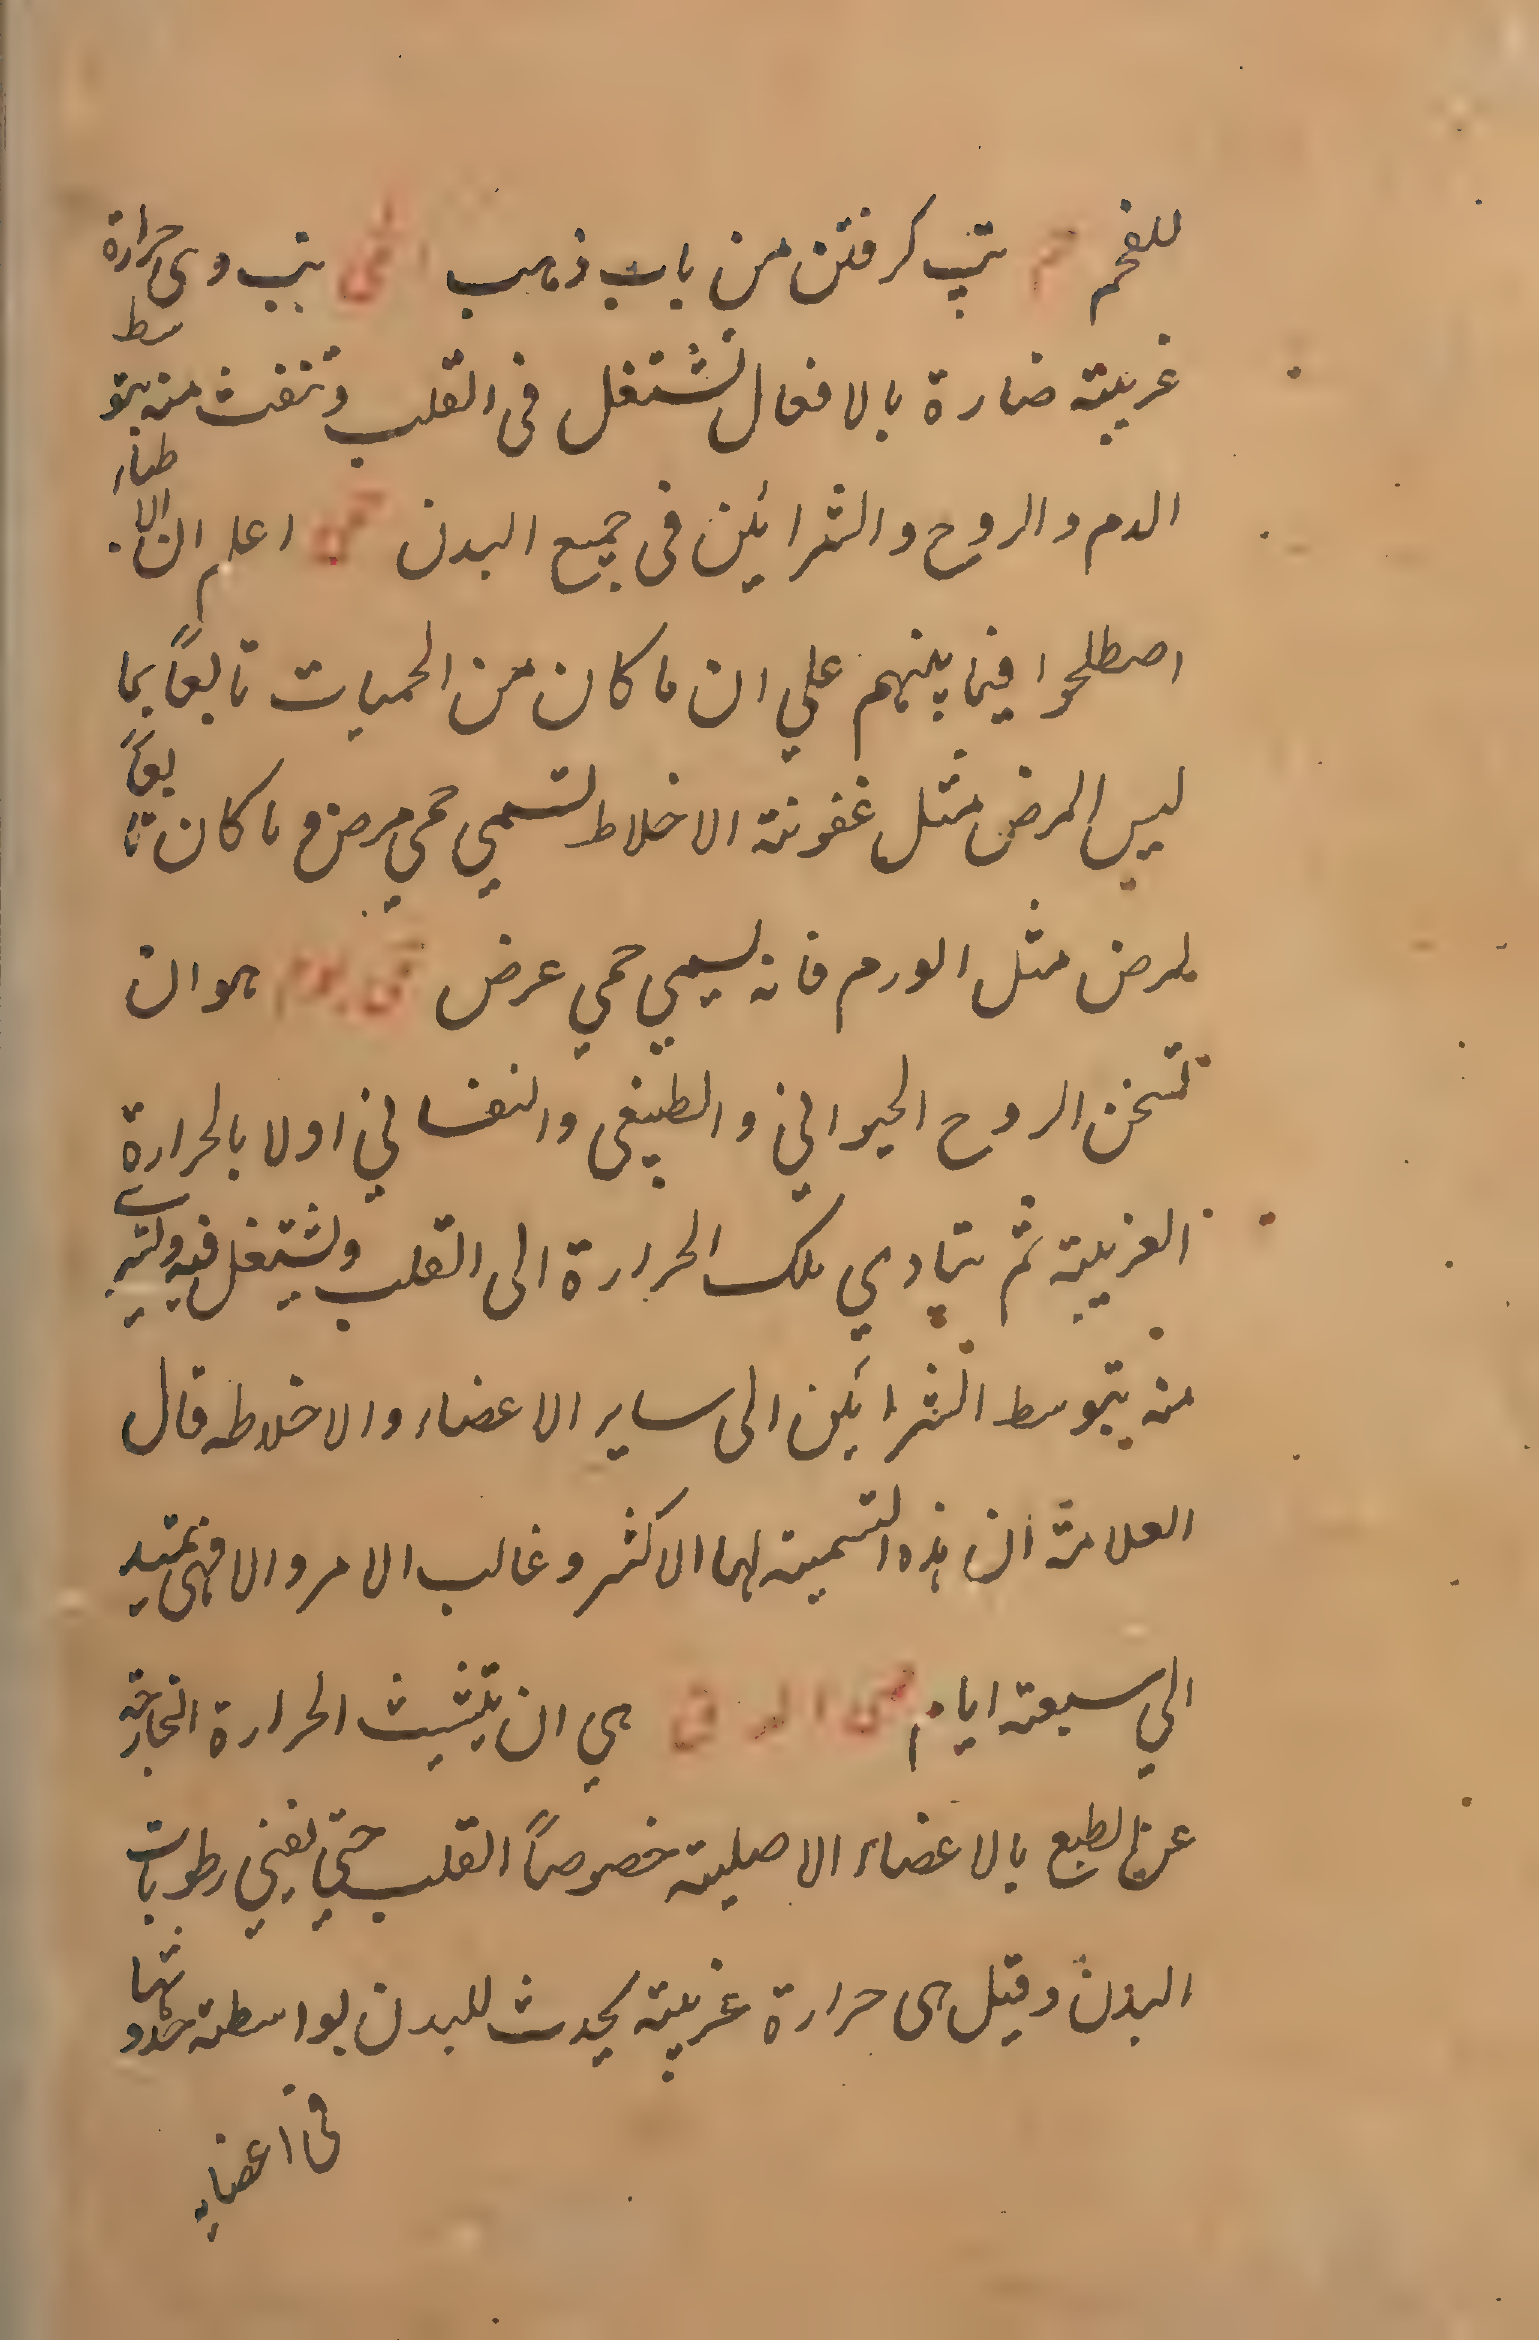 للفحم حم تپ كرفتن من باب ذهب الحمى تب وهى حرارة
غريبة ضارة بالافعال تشتعل فى القلب وتنفث منه بتوسط
الدم والروح والشرائين فى جميع البدن اعلم ان الاطباء
اصطلحوا فيما بينهم علي ان ما كان من الحميات تابعاً بما
ليس المرض مثل عفونة الاخلاط تسمي حمي مرض و ما كان تابعاً
لمرض مثل الورم فانه يسمي حمي عرض حمى يوم هو ان
تسخن الروح الحيواني والطبيعى والنفساني اولا بالحرارة
الغريبة ثم يتادي تلك الحرارة الى القلب ويشتعل فيه
منه بتوسط الشرائين الى ساير الاعضاء والاخلاط قال
العلامة ان هذه التسمية لها الاكثر وغالب الامر والا فهى تمتد
الي سبعة ايام حمى الدق هي ان يتشبث الحرارة الخارجة
عن الطبع بالاعضاء الاصلية خصوصاً القلب حتي يفني رطوبات
البدن وقيل هى حرارة غريبة يحدث للبدن بواسطة حدوثها
فى اعضاء